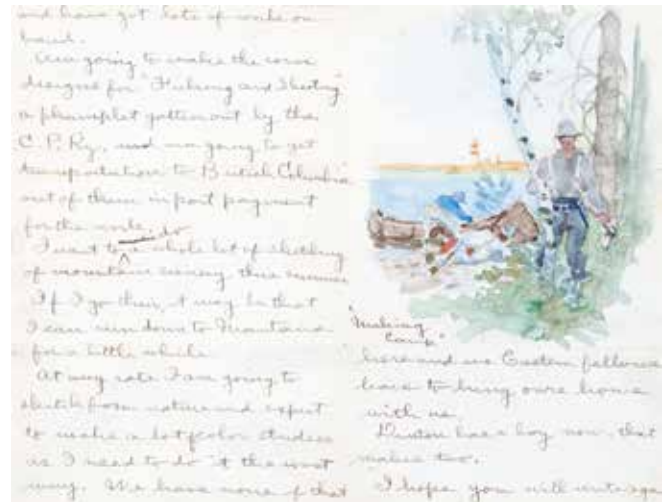 and have got lots of work on
hand.
Am going to make the cover
designs for "Fishing and Shooting"
a phamplet gotten out by the
C. P. Ry. and am going to get
transportation to British Columbia
out of them in part payment
for the work.
I want to do whole lot of sketching
of mountain scenery this summer
If I go there, it may be that
I can run down to Montana
for a little while.
At any rate I am going to
sketch from nature and expect
to make a lot of color studies
as I need to do it the worst
way. We have none of that
"Making
Camp"
here and we Eastern fellows
have to bring ours home
with us.
has a boy now, that
makes two.
I hope you will write